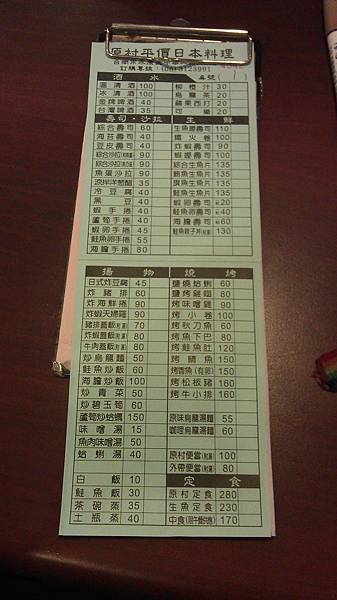 原村平價日本料理
訂購專號：(06)3123991
酒 水
溫 清 酒 100 柳橙汁 30
冰 清 酒 100 烏龍茶 20
金牌啤酒 40 蘋果西打 20
台灣啤酒 35 可 樂 20
壽司・沙拉 生 鮮
綜合壽司 60 生魚腰壽司 110
海苔壽司 40 鐵火卷 90
豆皮壽司 40 炸蝦壽司 90
綜合沙拉 90 蝦握壽司 100
綜合沙拉 90 綜合生魚片 135
魚蛋沙拉 90 鮪魚生魚片 135
涼拌洋蔥醋 35 旗魚生魚片 135
冷豆腐 40 鮭魚生魚片 135
黑 豆 40 蝦卵壽司 20
蝦手捲 40 海膽壽司 60
蘆筍手捲 40 鮭魚卵壽司 60
蝦卵手捲 45 鮭魚親子丼 130
鮭魚卵手捲 55
海膽手捲 60
揚 物 燒 烤
日式炸豆腐 45 鹽燒蛤蜊 60
炸豬排 60 鹽烤雞翅 80
炸海鮮捲 90 烤味噌雞 90
炸蝦天婦羅 90 烤小卷 100
豬排蓋飯(附湯) 70 烤秋刀魚 60
炸蝦蓋飯(附湯) 80 烤魚下巴 80
牛肉蓋飯(附湯) 80 烤鮭魚肚 120
炒烏龍麵 60 烤鯖魚 150
鮭魚炒飯 60 烤香魚(有卵) 150
海膽炒飯 100 烤松板豬 160
炒青菜 50 烤牛小排 160
炒碧玉筍 60
蘆筍炒蛤蠣 150 原味烏龍湯麵 55
味噌湯 15 咖哩烏龍湯麵 60
魚肉味噌湯 50
蛤蜊湯 40 原村便當(附湯) 100
外帶便當(附湯) 80
白 飯 10 定 食
鮭魚飯 30 原村定食 280
茶碗蒸 35 生魚定食 230
土瓶蒸 40 中食 170